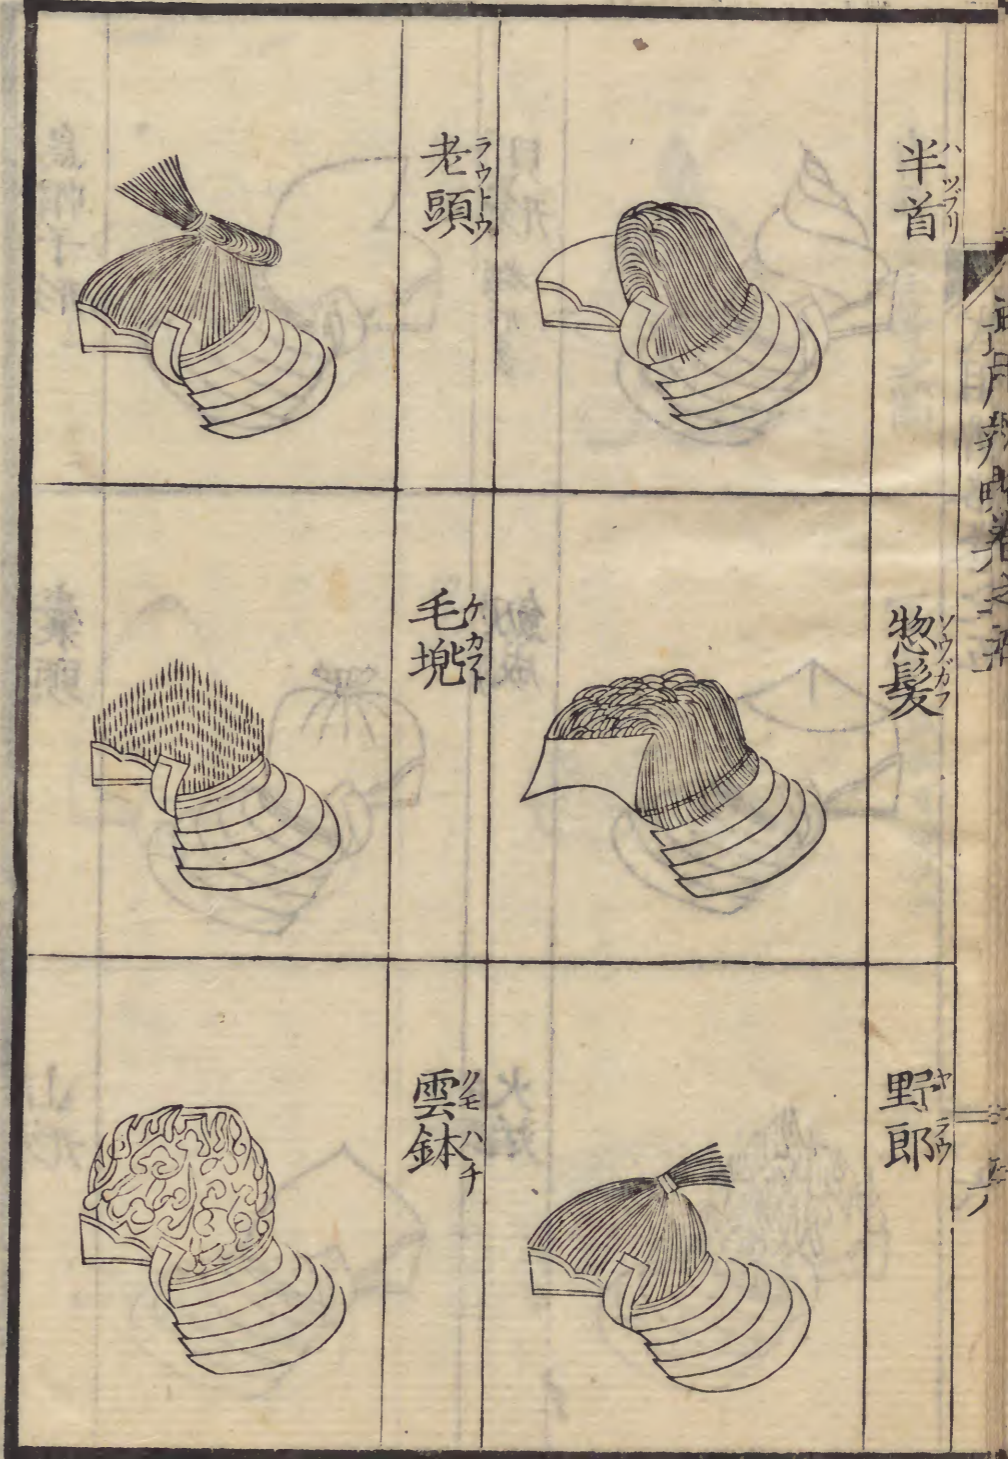 半首
ハツブリ
惣髪
ソウガフ
野郎
ヤラウ
老頭
ラウトウ
毛兠
ケカブト
雲鉢
クモハチ